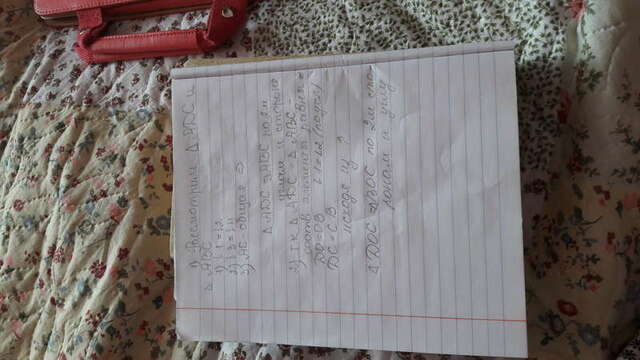 1) Рассмотрим Δ ADC и
Δ ABC
1) ∠1=∠2
2) ∠3=∠4
3) AC-общая ⇒
ΔADC=ΔABC по 2м
углам и стороне
2) т.к Δ ADC = Δ ABC -
соотв элементы равны ⇒
DO=OB ∠1=∠2 (по усл)
DC=CB
исходя из 3
Δ DOC =ΔBOC по 2м сто-
ронам и углу